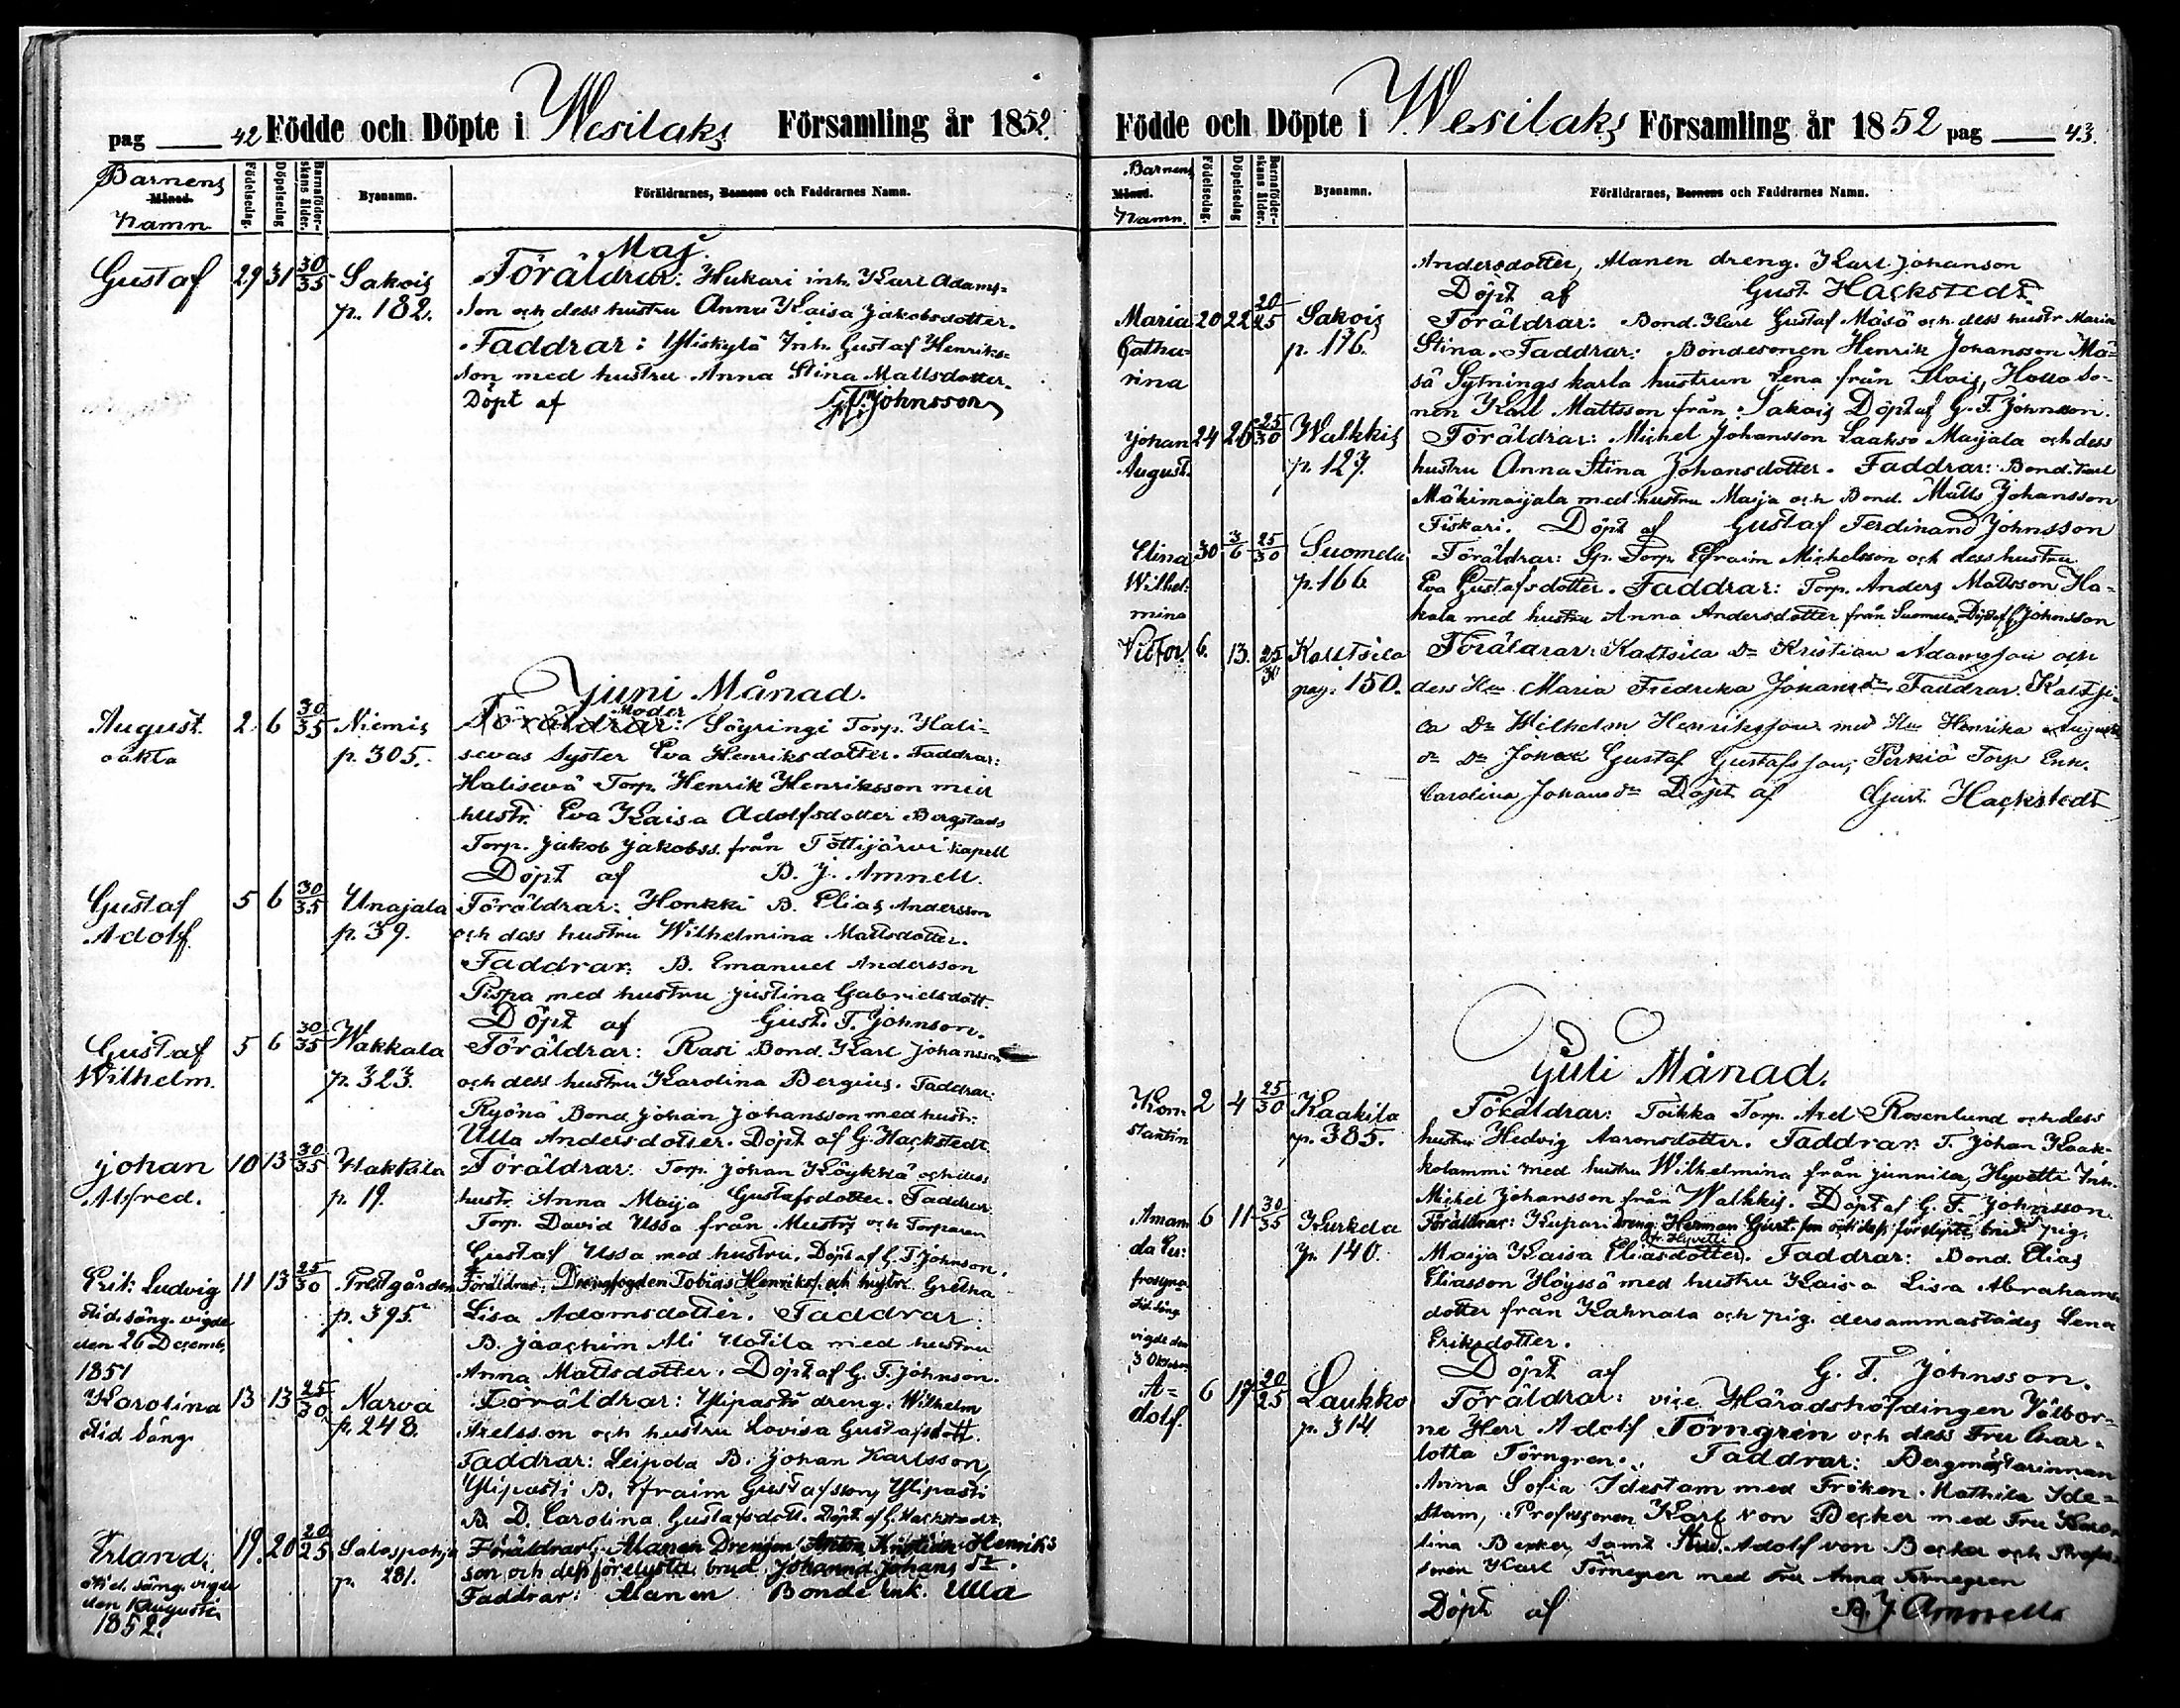 pag 42 Födde och Döpte i Wesilaks Församling år 1852.
Barnens
Månad.
Namn.
Födelsedag.
Döpelsedag
Barnaföderskans ålder.
Byanamn.
Föräldrarnes, Barnens och Faddrarnes Namn.
Maj.
Gustaf 29 31 30/35 Sakois Föräldrar: Hukari inh. Karl Adams=
p. 182. son och dess hustru Anna Kaisa Jakobsdotter.
Faddrar: Yliskylä Inh. Gustaf Henriks=
son med hustru Anna Stina Mattsdotter.
Döpt af G. F. Johnsson
Juni Månad.
August. 2 6 30/35 Niemis Föräldrar: Moder Söyringi Torp. Hali=
oäkta p. 305. sevas Syster Eva Henriksdotter. Faddrar:
Halisevä Torp. Henrik Henriksson med
hustr. Eva Kaisa Adolfsdotter Bergstads
Torp. Jakob Jakobss. från Tottijärvi kapell
Döpt af B. J. Amnell.
Gustaf 5 6 30/35 Unajala Föräldrar: Honkki B. Elias Andersson
Adolf. p. 39. och dess hustru Wilhelmina Mattsdotter.
Faddrar: B. Emanuel Andersson
Pispa med hustru Justina Gabrielsdott.
Döpt af Gust. F. Johnson.
Gustaf 5 6 30/35 Wakkala Föräldrar: Rasi Bond. Karl Johansson
Wilhelm. p. 323. och dess hustru Karolina Bergius. Faddrar:
Ryönä Bond Johan Johansson med hustr.
Ulla Andersdotter. Döpt af G. Hackstedt.
Johan 10 13 30/35 Hakkila Föräldrar: Torp. Johan Köykkä och dess
Alfred. p. 19. hustr. Anna Maija Gustafsdotter. Faddrar
Torp. David Ussa från Mustis och Torparen
Gustaf Ussa med hustru. Döpt af G. F. Johnson.
Erik Ludvig 11 13 25/30 Prestgården Föräldrar: Drengfogden Tobias Henrikss. och hustru Gretha
Hid. säng. vigde p. 395. Lisa Adamsdotter. Faddrar:
den 26 Decemb. B. Joachim Ali Hotila med hustru
1851 Anna Mattsdotter. Döpt af G. F. Johnson.
Karolina 13 13 25/30 Narva Föräldrar: Ylipasti dreng. Wilhelm
Hid säng. p. 248. Axelsson och hustru Lovisa Gustafsdott.
Faddrar: Leipola B. Johan Karlsson,
Ylipasti B. Efraim Gustafsson, Ylipasti
B. D. Carolina Gustafsdott. Döpt af G. Hackstedt.
Erland. 19. 20 20/25 Salospohja Föräldrar: Alanen Drengen Anton Kristian Henriks
Hid. säng. vigde p. 281. son och dess förelysta brud Johanna Johans dr.
den 1 Augusti Faddrar: Alanen Bonde Enk. Ulla
1852.
Födde och Döpte i Wesilaks Församling år 1852 pag 43.
Barnens
Månad.
Namn.
Födelsedag.
Döpelsedag
Barnaföderskans ålder.
Byanamn.
Föräldrarnes, Barnens och Faddrarnes Namn.
Andersdotter, Alanen dreng. Karl Johanson
Döpt af Gust. Hackstedt
Maria 20 22 20/25 Sakois Föräldrar: Bond. Karl Gustaf Mäsä och dess hustr Maria
Catha= p. 176. Stina. Faddrar: Bondesonen Henrik Johansson Mä=
rina sä Sytnings karla hustrun Lena från Flois, Hollo So=
nen Karl Mattsson från Sakois Döpt af G. F. Johnsson.
Johan 24 26 25/30 Walkkis Föräldrar: Michel Johansson Laakso Maijala och dess
August. p. 127. hustru Anna Stina Johansdotter. Faddrar: Bond. Karl
Mäkimaijala med hustru Maija och Bond. Matts Johansson
Fiskari. Döpt af Gustaf Ferdinand Johnsson
Elina 30 3/6 25/30 Suomela Föräldrar: Gr. Torp. Efraim Michelsson och dess hustru
Wilhel= p. 166. Eva Gustafsdotter. Faddrar: Torp. Anders Mattsson Ha=
mina kala med hustru Anna Andersdotter från Suomela. Döpt af G. F. Johnsson
Victor. 6. 13. 25/30 Kaltsila Föräldrar: Kaltsila Dr. Kristian Adamsson och
pag. 150. dess Hu Maria Fredrika Johansdr. Faddrar: Kaltsi=
la Dr Wilhelm Henriksson med Hu Henrika August
dr Dr Johan Gustaf Gustafsson, Perkiö Torp Enk.
Carolina Johans dr Döpt af Gust. Hackstedt
Juli Månad.
Kon= 2 4 25/30 Kaakila Föräldrar: Toikka Torp. Axel Rosenlund och dess
stantin p. 385. hustru Hedvig Aaronsdotter. Faddrar: T. Johan Kaak=
kolammi med hustru Wilhelmina från Junnila, Hyvetti Inh.
Michel Johansson från Walkkis. Döpt af G. F. Johnsson.
Aman 6 11 30/35 Kurkela Föräldrar: Kupari dreng. Herman Gust. son och dess förelyste brud pig.
da Eu= p. 140. Maija Kaisa Eliasdotter fr. Hyvetti. Faddrar: Bond. Elias
frosyna Eliasson Höyssä med hustru Kaisa Lisa Abrahams
Hid säng dotter från Kahnala och pig. dersammastädes Lena
vigde den Eriksdotter.
3 Oktober Döpt af G. F. Johnsson.
A= 6 17 20/25 Laukko Föräldrar: vice Häradshöfdingen Välbor=
dolf. p. 314 ne Herr Adolf Törngrén och dess Fru Char=
lotta Törngren. Faddrar: Bergmästarinnan
Anna Sofia Idestam med Fröken Mathila Ide=
stam, Professoren Karl von Becker med Fru Karo
lina Becker samt Stud. Adolf von Becker och Profes=
soren Karl Törnegren med Fru Anna Törnegren
Döpt af B. J. Amnell